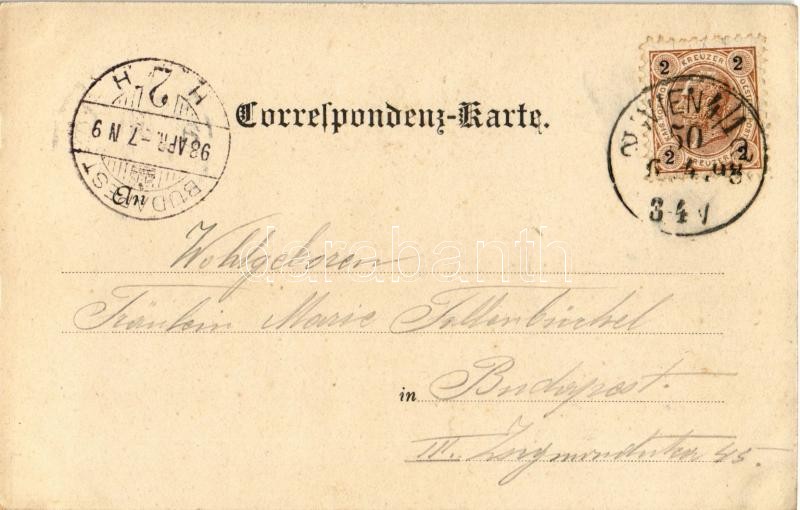 Correspondenz-Karte.
KREUZER
2 2
2 2
KREUZER
WIEN
50
4.98
3-4
BUDAPEST
98 APR.-7 N 9
H 2 H
Wohlgeboren
Fräulein Marie
in Budapest.
III. 45.
darabanth